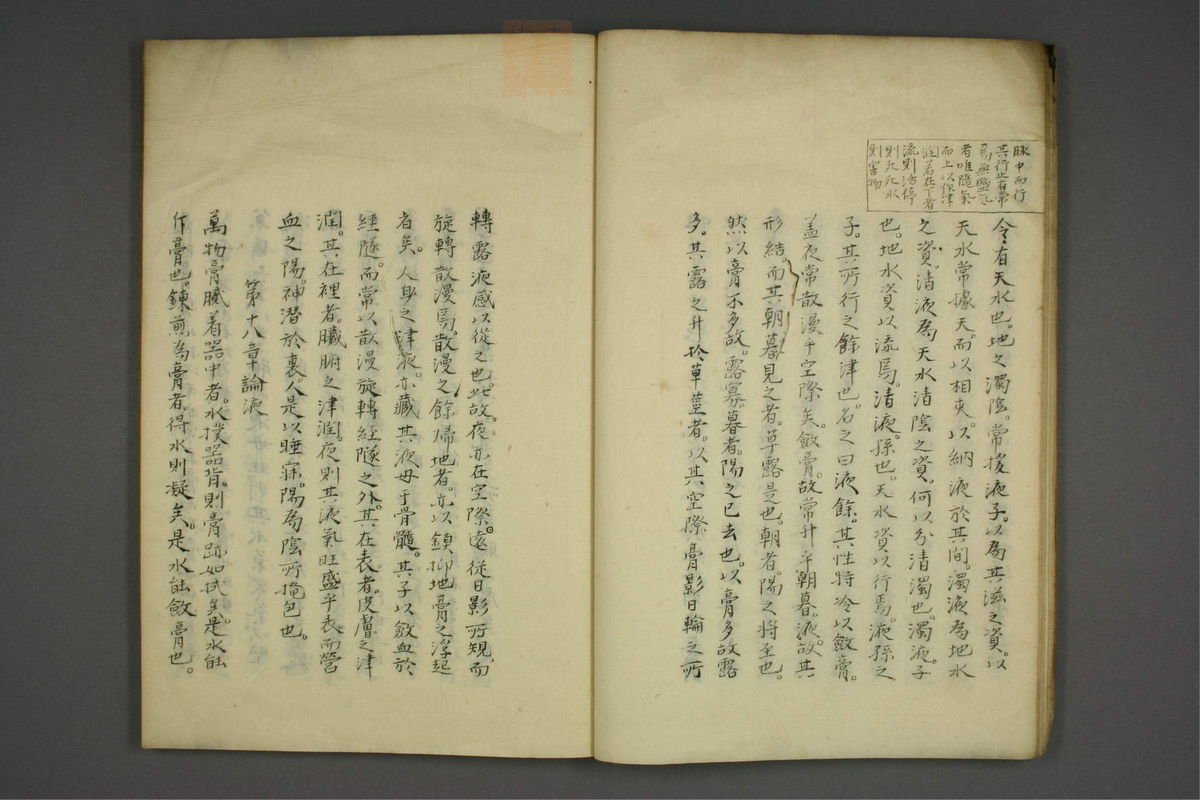 脉中而行
其行止有常
焉無盬元
者唯隨氣
而上以保津
涯若在下者
流則活停
則死死水
則害物
令有天水也。地之濁陰。常援液子。以爲其滋之資。以
天水常據天。而以相夾。以納液於其間。濁液爲地水
之資。清液爲天水清陰之資。何以分清濁也。濁液子
也。地水資以流焉。清液孫也。天水資以行焉。液孫之
子。其所行之餘津也。名之曰液餘。其性特冷以斂膏。
盖夜常散漫于空際矣。斂膏。故常升乎朝暮。液。故其
形結。而其朝暮見之者。草露是也。朝者。陽之將至也。
然以膏不多故。露寡。暮者。陽之已去也。以膏多故露
多。其露之升於草莖者。以其空際膏影日輪之所
轉露液感以從之也。此故。夜亦在空際。遠從日影所規。而
旋轉散漫焉。散漫之餘。歸地者。亦以鎮抑地膏之浮起
者矣。人身之津液。亦藏其液母于骨髓。其子以斂血於
經隧。而常以散漫旋轉経隧之外。其在表者。皮膚之津
潤。其在裡者。臓腑之津潤。夜則其液氣旺盛乎表。而營
血之陽。神潜於裏。人是以睡寐。陽爲陰所掩包也。
第十八章論液
萬物膏膩着器中者。水撲器背。則膏跡如拭矣。是水能
作膏也。鍊煎爲膏者。得水則凝矣。是水能斂膏也。